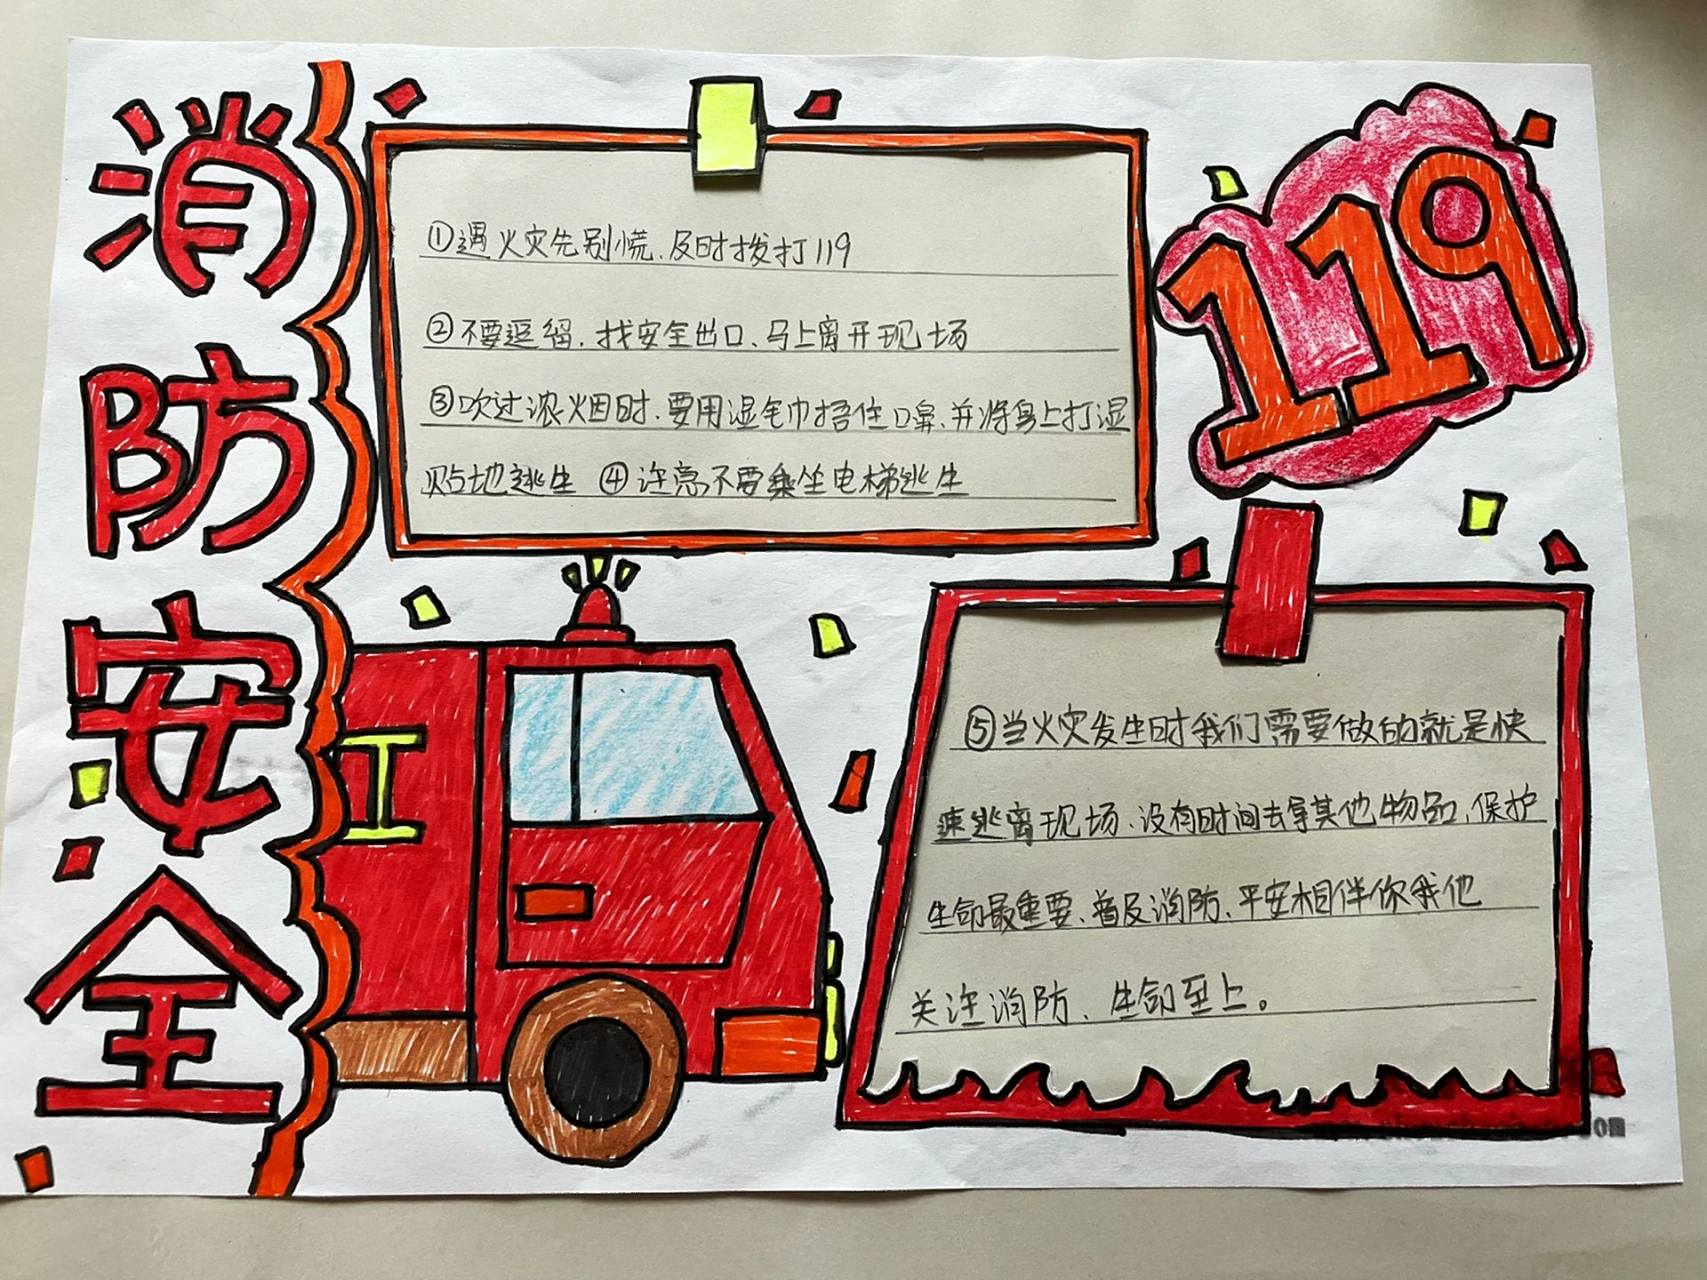 消防安全
①遇火灾先别慌、及时拨打119
②不要逗留、找安全出口、马上离开现场
③吹过浓烟时、要用湿毛巾捂住口鼻、并将身上打湿
贴地逃生 ④许高不要乘坐电梯逃生
119
⑤当火灾发生时我们需要做的就是快
速逃离现场、没有时间去拿其他物品、保护
生命最重要、普及消防、平安相伴你我他
关注消防、生命至上。